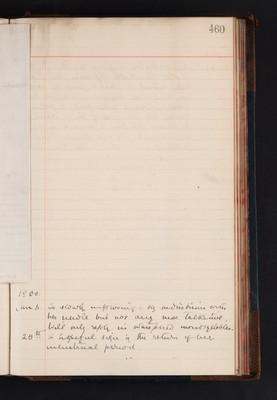 460
1900
Jan 8 is slowly improving - is industrious with
her needle but not any more talkative.
Will only reply in whispered monosyllables.
28th A hopeful sign is the return of her
menstrual period